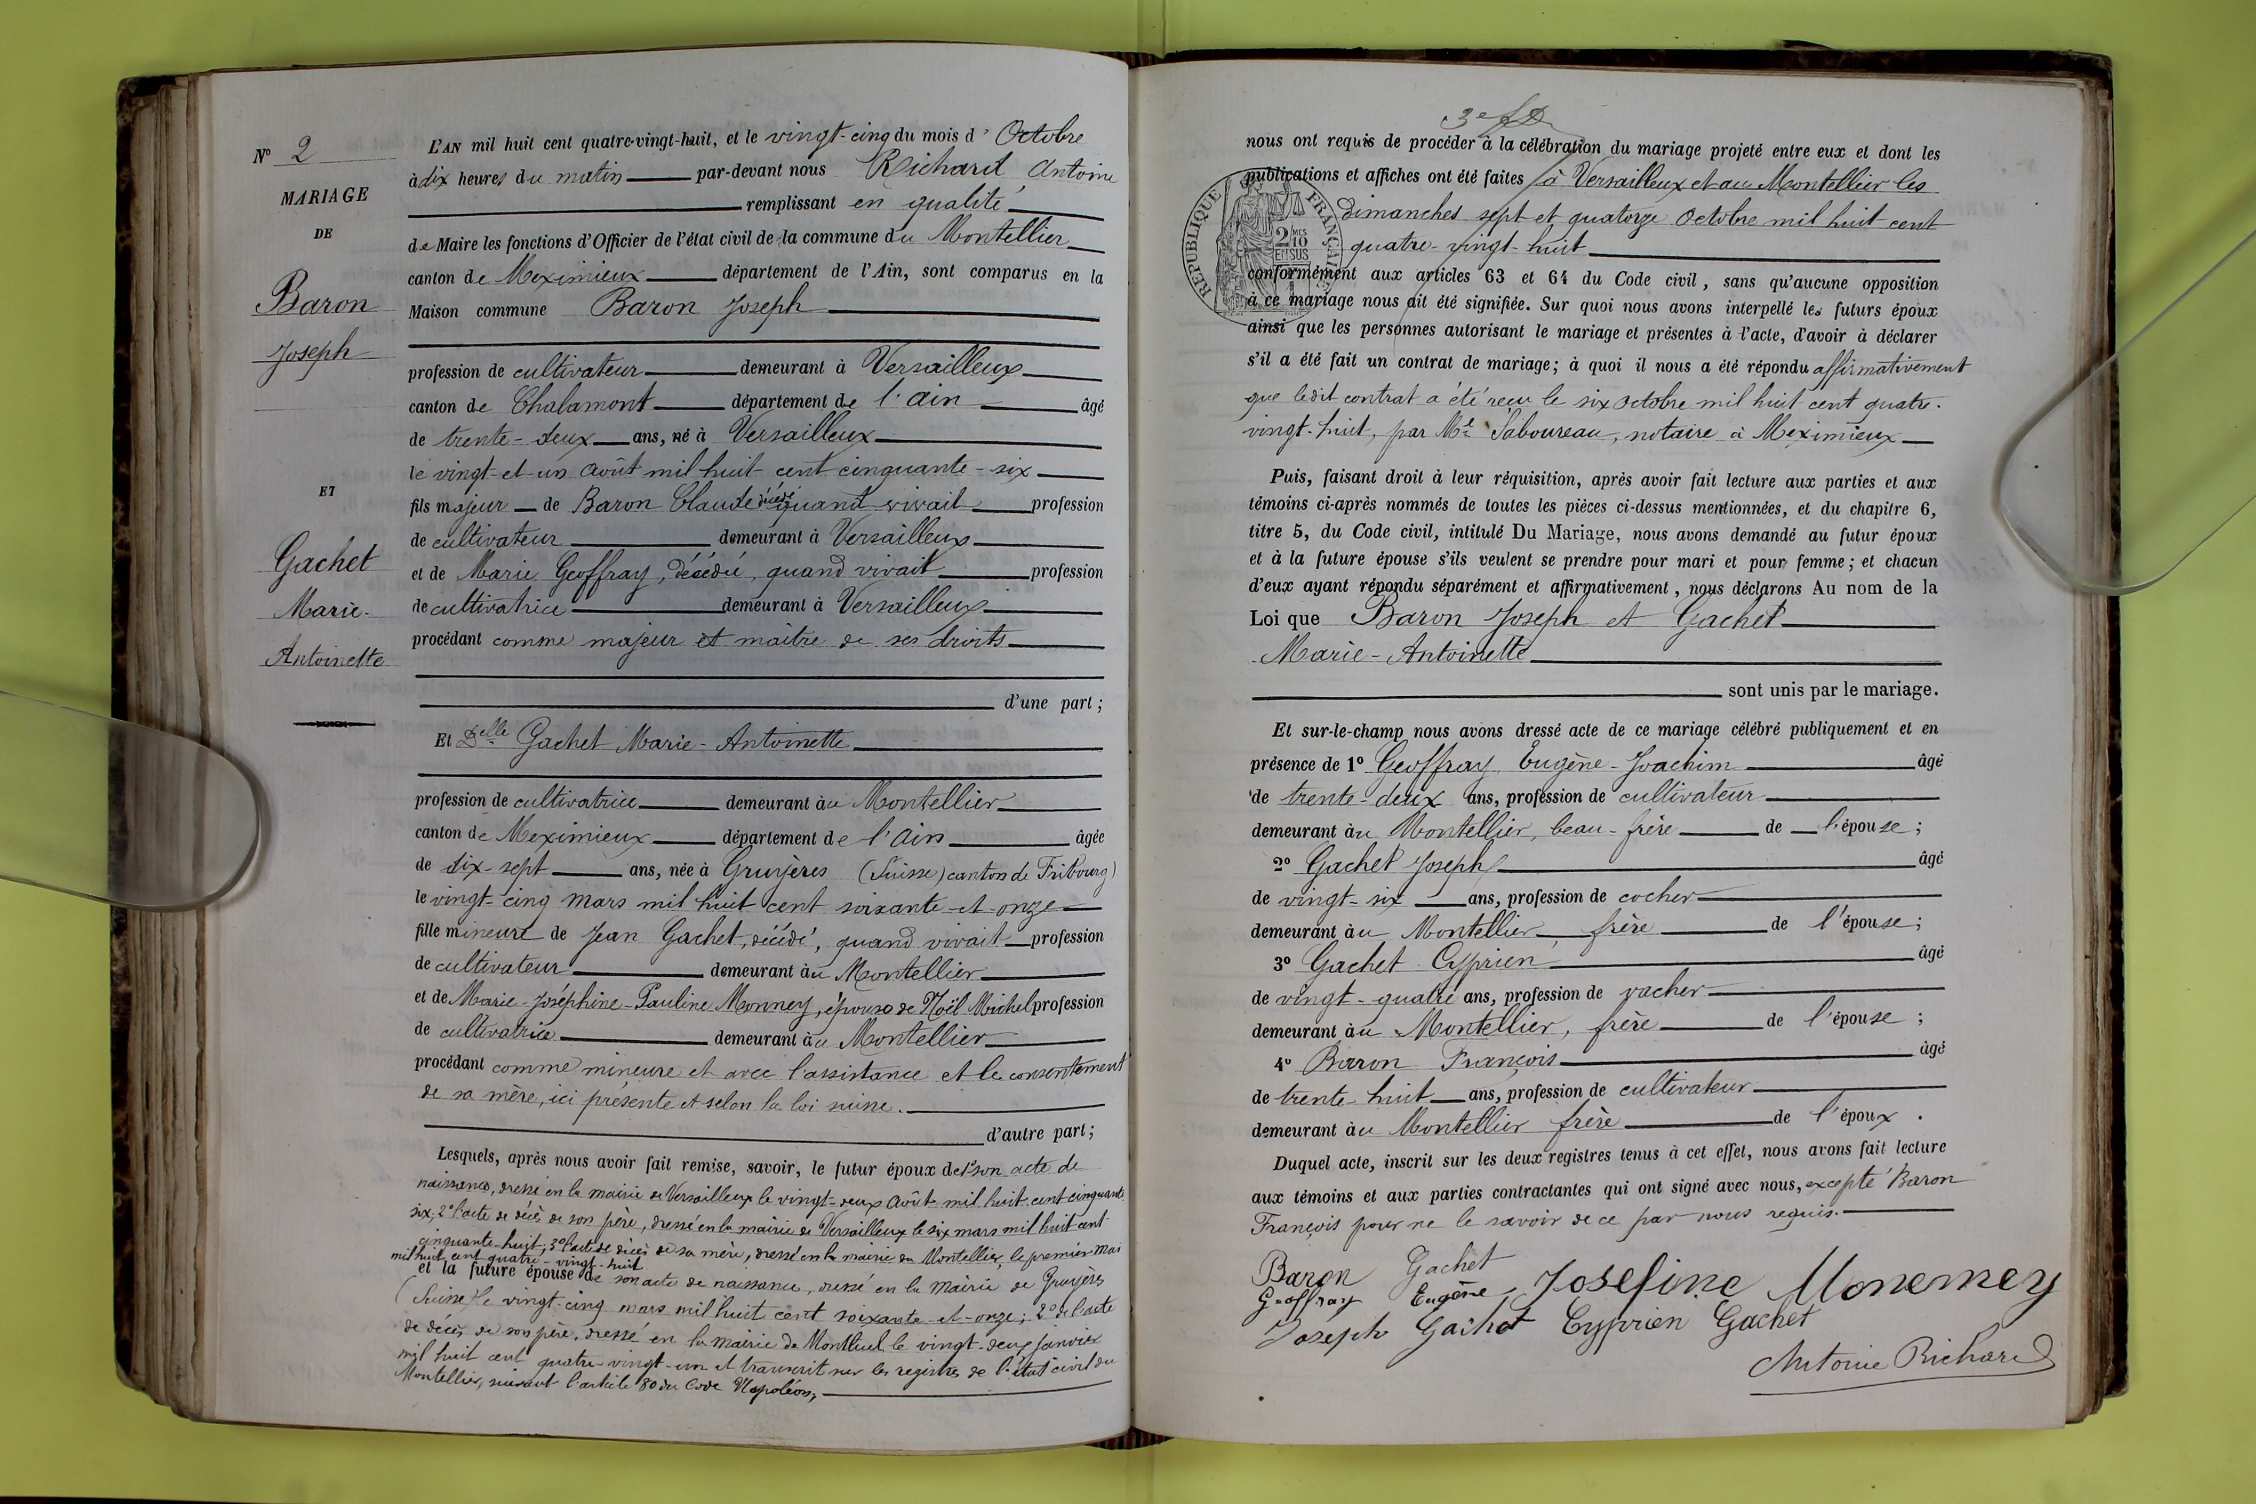 N° 2
MARIAGE
DE
Baron
Joseph
ET
Gachet
Marie-
Antoinette
L'AN mil huit cent quatre-vingt-huit, et le vingt-cinq du mois d'Octobre
à dix heures du matin par-devant nous Richard Antoine
remplissant en qualité
de Maire les fonctions d'Officier de l'état civil de la commune du Montellier
canton de Meximieux département de l'Ain, sont comparus en la
Maison commune Baron Joseph
profession de cultivateur demeurant à Versailleux
canton de Chalamont département de l'Ain âgé
de trente-deux ans, né à Versailleux
le vingt-et-un Août mil huit cent cinquante-six
fils majeur de Baron Claude décédé quand vivait profession
de cultivateur demeurant à Versailleux
et de Marie Geoffray, décédée, quand vivait profession
de cultivatrice demeurant à Versailleux
procédant comme majeur et maître de ses droits
d'une part ;
Et Delle Gachet Marie-Antoinette
profession de cultivatrice demeurant au Montellier
canton de Meximieux département de l'Ain âgée
de dix-sept ans, née à Gruyères (Suisse) canton de Fribourg)
le vingt-cinq mars mil huit cent soixante-et-onze
fille mineure de Jean Gachet, décédé, quand vivait profession
de cultivateur demeurant au Montellier
et de Marie-Joséphine-Pauline Monney, épouse de Noël Michel profession
de cultivatrice demeurant au Montellier
procédant comme mineure et avec l'assistance et le consentement
de sa mère, ici présente et selon la loi suisse.
d'autre part ;
Lesquels, après nous avoir fait remise, savoir, le futur époux de 1° son acte de
naissance, dressé en la mairie de Versailleux le vingt-deux Août mil huit cent cinquante-
six, 2° l'acte de décès de son père, dressé en la mairie de Versailleux le six mars mil huit cent
cinquante-huit, 3° l'acte de décès de sa mère, dressé en la mairie du Montellier, le premier Mai
mil huit cent quatre-vingt-huit
et la future épouse de son acte de naissance, dressé en la Mairie de Gruyères
(Suisse) le vingt-cinq mars mil huit cent soixante-et-onze ; 2° de l'acte
de décès de son père, dressé en la mairie de Montluel le vingt-deux Janvier
mil huit cent quatre-vingt-un et transcrit sur les registres de l'état civil du
Montellier, suivant l'article 80 du Code Napoléon,
nous ont requis de procéder à la célébration du mariage projeté entre eux et dont les
publications et affiches ont été faites à Versailleux et au Montellier les
dimanches sept et quatorze Octobre mil huit cent
quatre-vingt-huit
RÉPUBLIQUE FRANÇAISE
2 MES
10
ET SUS
conformément aux articles 63 et 64 du Code civil, sans qu'aucune opposition
à ce mariage nous ait été signifiée. Sur quoi nous avons interpellé les futurs époux
ainsi que les personnes autorisant le mariage et présentes à l'acte, d'avoir à déclarer
s'il a été fait un contrat de mariage ; à quoi il nous a été répondu affirmativement
que ledit contrat a été reçu le six Octobre mil huit cent quatre-
vingt-huit, par Me Saboureau, notaire à Meximieux
Puis, faisant droit à leur réquisition, après avoir fait lecture aux parties et aux
témoins ci-après nommés de toutes les pièces ci-dessus mentionnées, et du chapitre 6,
titre 5, du Code civil, intitulé Du Mariage, nous avons demandé au futur époux
et à la future épouse s'ils veulent se prendre pour mari et pour femme ; et chacun
d'eux ayant répondu séparément et affirmativement, nous déclarons Au nom de la
Loi que Baron Joseph et Gachet
Marie-Antoinette
sont unis par le mariage.
Et sur-le-champ nous avons dressé acte de ce mariage célébré publiquement et en
présence de 1° Geoffray Eugène-Joachim âgé
de trente-deux ans, profession de cultivateur
demeurant au Montellier, beau-frère de l'épouse ;
2° Gachet Joseph âgé
de vingt-six ans, profession de cocher
demeurant au Montellier frère de l'épouse ;
3° Gachet Cyprien âgé
de vingt-quatre ans, profession de vacher
demeurant au Montellier, frère de l'épouse ;
4° Baron François âgé
de trente-huit ans, profession de cultivateur
demeurant au Montellier frère de l'époux.
Duquel acte, inscrit sur les deux registres tenus à cet effet, nous avons fait lecture
aux témoins et aux parties contractantes qui ont signé avec nous, excepté Baron
François pour ne le savoir de ce par nous requis.
Baron Gachet Josefine Monemey
Geoffray Eugène
Joseph Gachet Cyprien Gachet
Antoine Richard